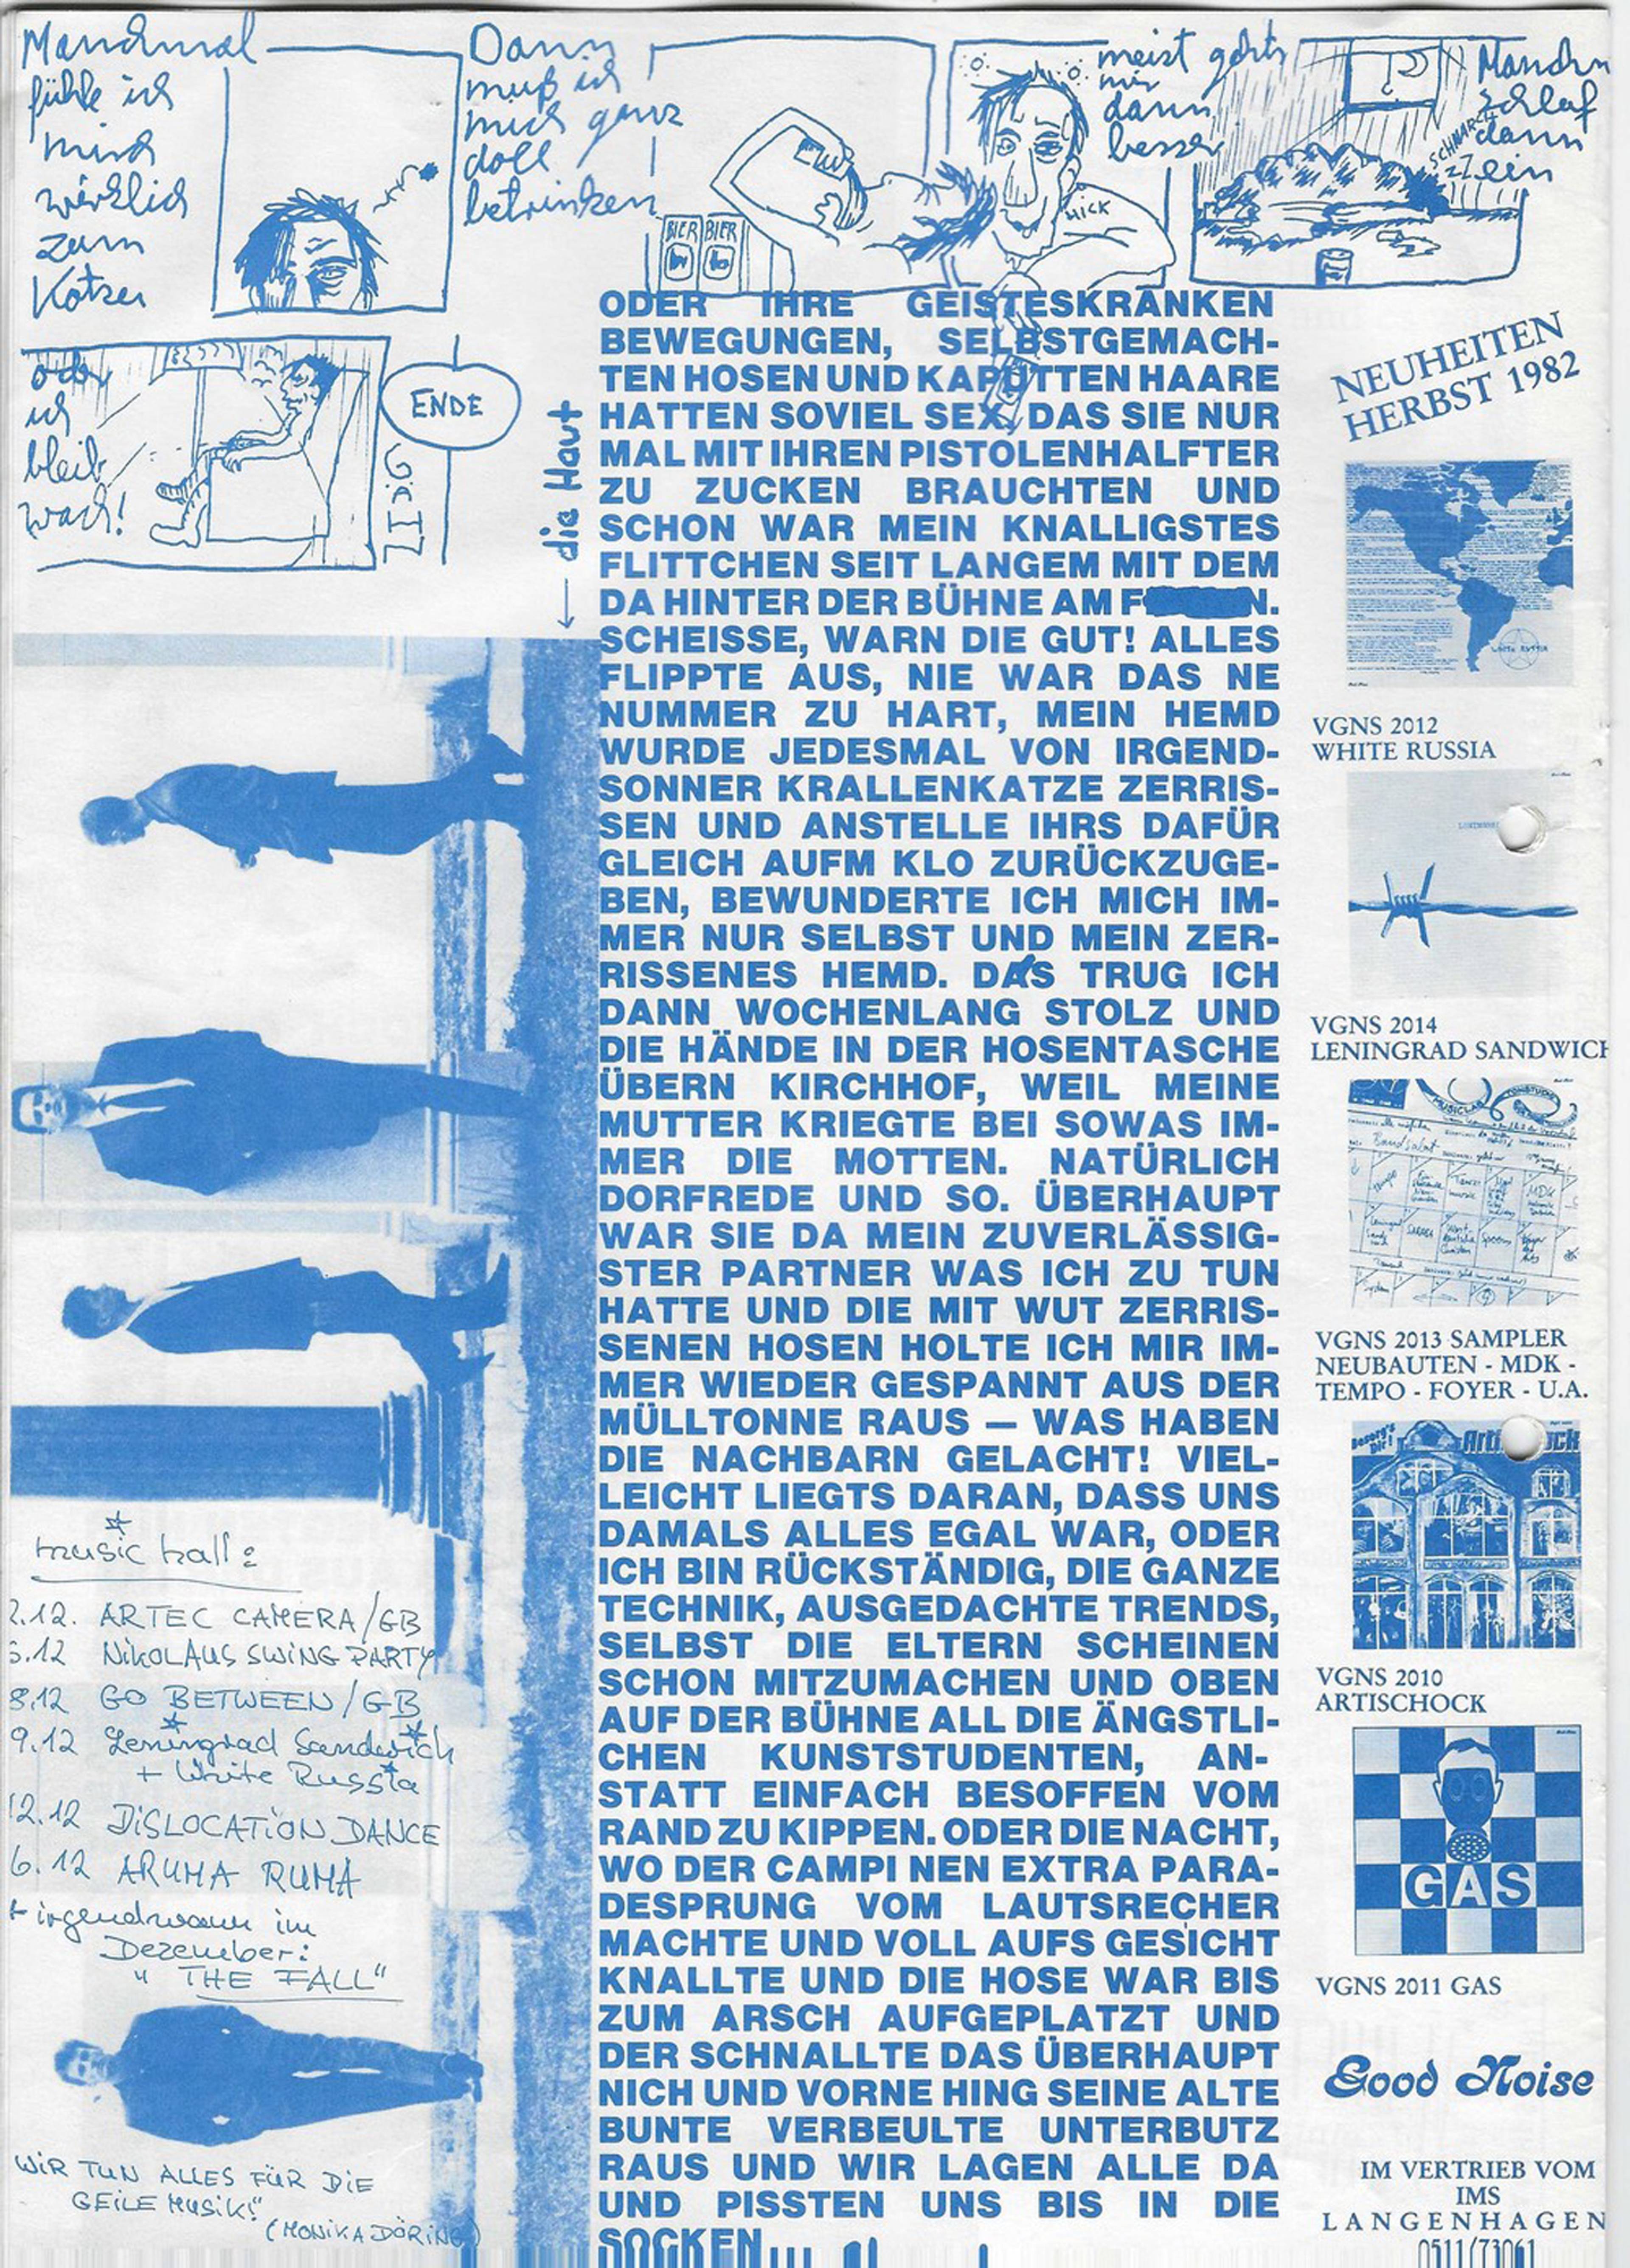 Manchmal
fühle ich
mich
wirklich
zum
Kotzen
Dann
muß ich
mich ganz
doll
betrinken
BIER BIER
HICK
meist gehts
mir
dann
besser
SCHNARCH
ZZ
Manchm
schlaf
dann
ein
oder
ich
bleib
wach!
ENDE
← die Haut
ODER IHRE GEISTESKRANKEN
BEWEGUNGEN, SELBSTGEMACH-
TEN HOSEN UND KAPUTTEN HAARE
HATTEN SOVIEL SEX, DAS SIE NUR
MAL MIT IHREN PISTOLENHALFTER
ZU ZUCKEN BRAUCHTEN UND
SCHON WAR MEIN KNALLIGSTES
FLITTCHEN SEIT LANGEM MIT DEM
DA HINTER DER BÜHNE AM F N.
SCHEISSE, WARN DIE GUT! ALLES
FLIPPTE AUS, NIE WAR DAS NE
NUMMER ZU HART, MEIN HEMD
WURDE JEDESMAL VON IRGEND-
SONNER KRALLENKATZE ZERRIS-
SEN UND ANSTELLE IHRS DAFÜR
GLEICH AUFM KLO ZURÜCKZUGE-
BEN, BEWUNDERTE ICH MICH IM-
MER NUR SELBST UND MEIN ZER-
RISSENES HEMD. DAS TRUG ICH
DANN WOCHENLANG STOLZ UND
DIE HÄNDE IN DER HOSENTASCHE
ÜBERN KIRCHHOF, WEIL MEINE
MUTTER KRIEGTE BEI SOWAS IM-
MER DIE MOTTEN. NATÜRLICH
DORFREDE UND SO. ÜBERHAUPT
WAR SIE DA MEIN ZUVERLÄSSIG-
STER PARTNER WAS ICH ZU TUN
HATTE UND DIE MIT WUT ZERRIS-
SENEN HOSEN HOLTE ICH MIR IM-
MER WIEDER GESPANNT AUS DER
MÜLLTONNE RAUS — WAS HABEN
DIE NACHBARN GELACHT! VIEL-
LEICHT LIEGTS DARAN, DASS UNS
DAMALS ALLES EGAL WAR, ODER
ICH BIN RÜCKSTÄNDIG, DIE GANZE
TECHNIK, AUSGEDACHTE TRENDS,
SELBST DIE ELTERN SCHEINEN
SCHON MITZUMACHEN UND OBEN
AUF DER BÜHNE ALL DIE ÄNGSTLI-
CHEN KUNSTSTUDENTEN, AN-
STATT EINFACH BESOFFEN VOM
RAND ZU KIPPEN. ODER DIE NACHT,
WO DER CAMPI NEN EXTRA PARA-
DESPRUNG VOM LAUTSRECHER
MACHTE UND VOLL AUFS GESICHT
KNALLTE UND DIE HOSE WAR BIS
ZUM ARSCH AUFGEPLATZT UND
DER SCHNALLTE DAS ÜBERHAUPT
NICH UND VORNE HING SEINE ALTE
BUNTE VERBEULTE UNTERBUTZ
RAUS UND WIR LAGEN ALLE DA
UND PISSTEN UNS BIS IN DIE
SOCKEN
music hall:
2.12. ARTEC CAMERA/GB
6.12 NIKOLAUS SWING PARTY
8.12 GO BETWEEN/GB
9.12 Leningrad Sandwich
+ White Russia
12.12 DISLOCATION DANCE
6.12 ARUMA RUMA
+ irgendwann im
Dezember:
" THE FALL"
WIR TUN ALLES FÜR DIE
GEILE MUSIK!"
(MONIKA DÖRING)
NEUHEITEN
HERBST 1982
WHITE RUSSIA
VGNS 2012
WHITE RUSSIA
VGNS 2014
LENINGRAD SANDWICH
MUSICLAB TONSTUDIO
Bandsalat
VGNS 2013 SAMPLER
NEUBAUTEN - MDK -
TEMPO - FOYER - U.A.
Besorg's
Dir!
VGNS 2010
ARTISCHOCK
GAS
VGNS 2011 GAS
Good Noise
IM VERTRIEB VOM
IMS
LANGENHAGEN
0511/73061